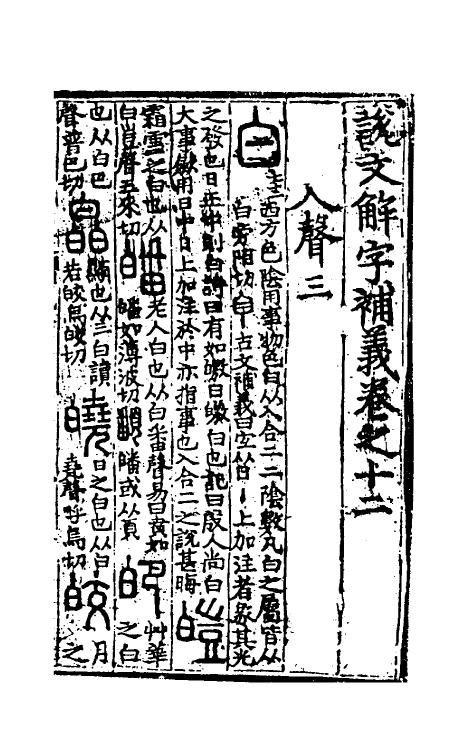 說文解字補義卷之十二
入聲三
白 西方色陰用事物色白从入合二二陰數凡白之屬皆从
白旁陌切 古文補義曰字从日丨上加注者象其光
之發也日正中則白詩曰有如皦日皦白也記曰殷人尚白
大事斂用日中日上加注於中亦指事也入合二之說甚晦 皚
霜雪之白也从
白豈聲五來切 皤 老人白也从白番聲易曰賁如
皤如薄波切 皤或从頁 皅 艸華
之白
也从白巴
聲普巴切 皛 顯也从三白讀
若皎烏皎切 皢 日之白也从白
堯聲呼鳥切 皎 月
之